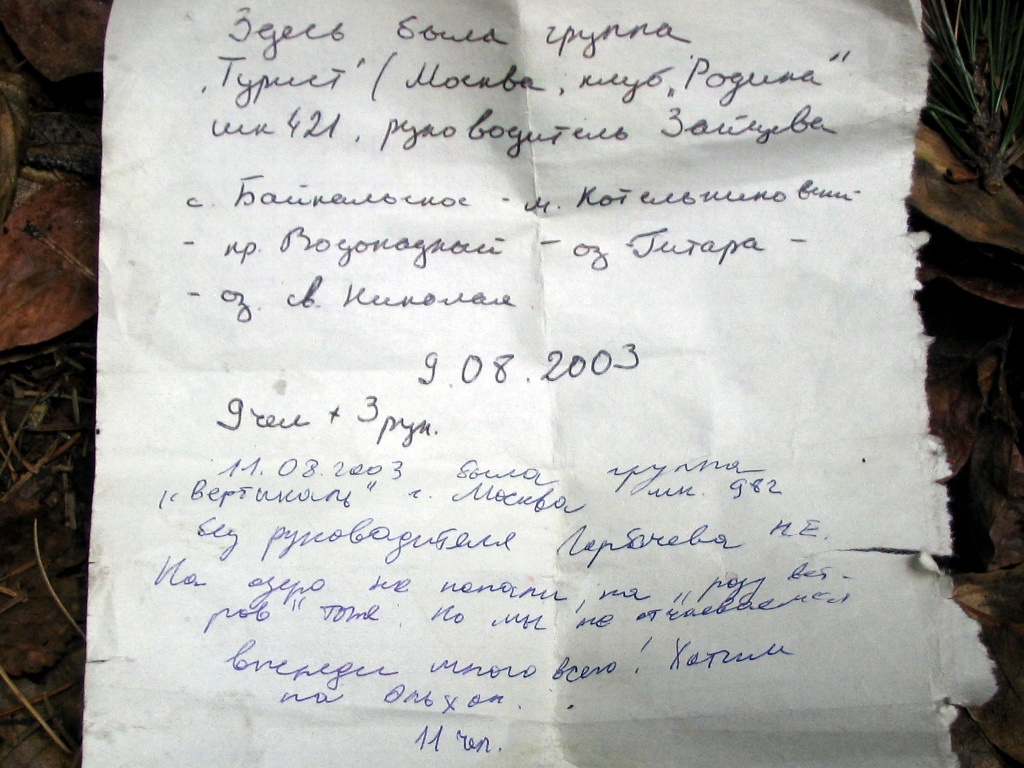 Здесь была группа
"Турист" (Москва, клуб "Родина"
шк 421, руководитель Зайцева
с. Байкальское - м. Котельниковский -
- пр. Водопадный - оз. Гитара -
- оз. св. Николая
9.08.2003
9 чел + 3 рук.
11.08.2003 была группа
"Вертикаль" г. Москва шк. 982
без руководителя Горбачева Н.Е.
На озеро не попали, на "розу вет-
ров" тоже. Но мы не отчаиваемся
впереди много всего! Хотим
на Ольхон.
11 чел.